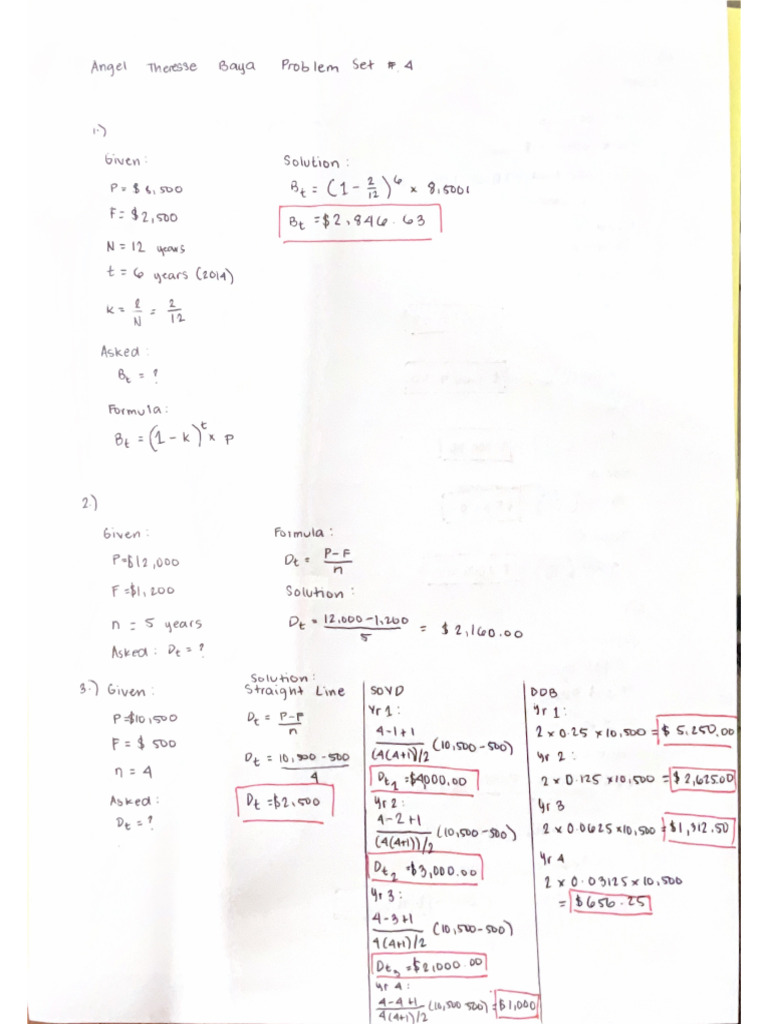 Angel Theresse Baya Problem Set # 4
1.)
Given:
P = $ 8,500
F = $2,500
N = 12 years
t = 6 years (2014)
k = 2/N = 2/12
Asked:
Bt = ?
Formula:
Bt = (1 - k)^t x P
Solution:
Bt = (1 - 2/12)^6 x 8,500
Bt = $2,846.63
2.)
Given:
P=$12,000
F=$1,200
n = 5 years
Asked: Dt = ?
Formula:
Dt = P-F/n
Solution:
Dt = 12,000-1,200/5 = $2,160.00
3.) Given:
P=$10,500
F = $ 500
n = 4
Asked:
Dt = ?
Solution:
Straight Line
Dt = P-F/n
Dt = 10,500-500/4
Dt = $2,500
SOYD
Yr 1:
4-1+1/(4(4+1)/2 (10,500-500)
Dt1 = $4000.00
Yr 2:
4-2+1/(4(4+1))/2 (10,500-500)
Dt2 = $3,000.00
Yr 3:
4-3+1/4(4+1)/2 (10,500-500)
Dt3 = $2000.00
Yr 4:
4-4+1/4(4+1)/2 (10,500 500) = $1,000
DDB
Yr 1:
2 x 0.25 x 10,500 = $ 5,250.00
Yr 2:
2 x 0.125 x 10,500 = $2,625.00
Yr 3
2 x 0.0625 x 10,500 = $1,312.50
Yr 4
2 x 0.03125 x 10,500
= $656.25